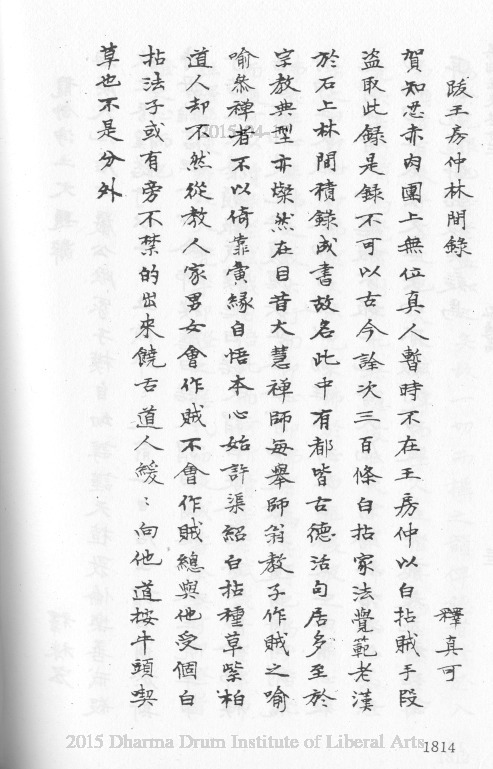 跋王房仲林間錄
釋真可
賀知忍赤肉團上無位真人暫時不在王房仲以白拈賊手段
盜取此錄是錄不可以古今詮次三百條白拈家法覺範老漢
於石上林間積錄成書故名此中有都皆古德活句居多至於
宗教典型亦燦然在目昔大慧禪師每舉師翁教子作賊之喻
喻叅禪者不以倚靠夤緣自悟本心始許渠紹白拈種草柴栢
道人却不然從教人家男女會作賊不會作賊總與他受個白
拈法子或有旁不禁的出來饒舌道人緩：向他道按牛頭喫
草也不是分外
1814
2015 Dharma Drum Institute of Liberal Arts